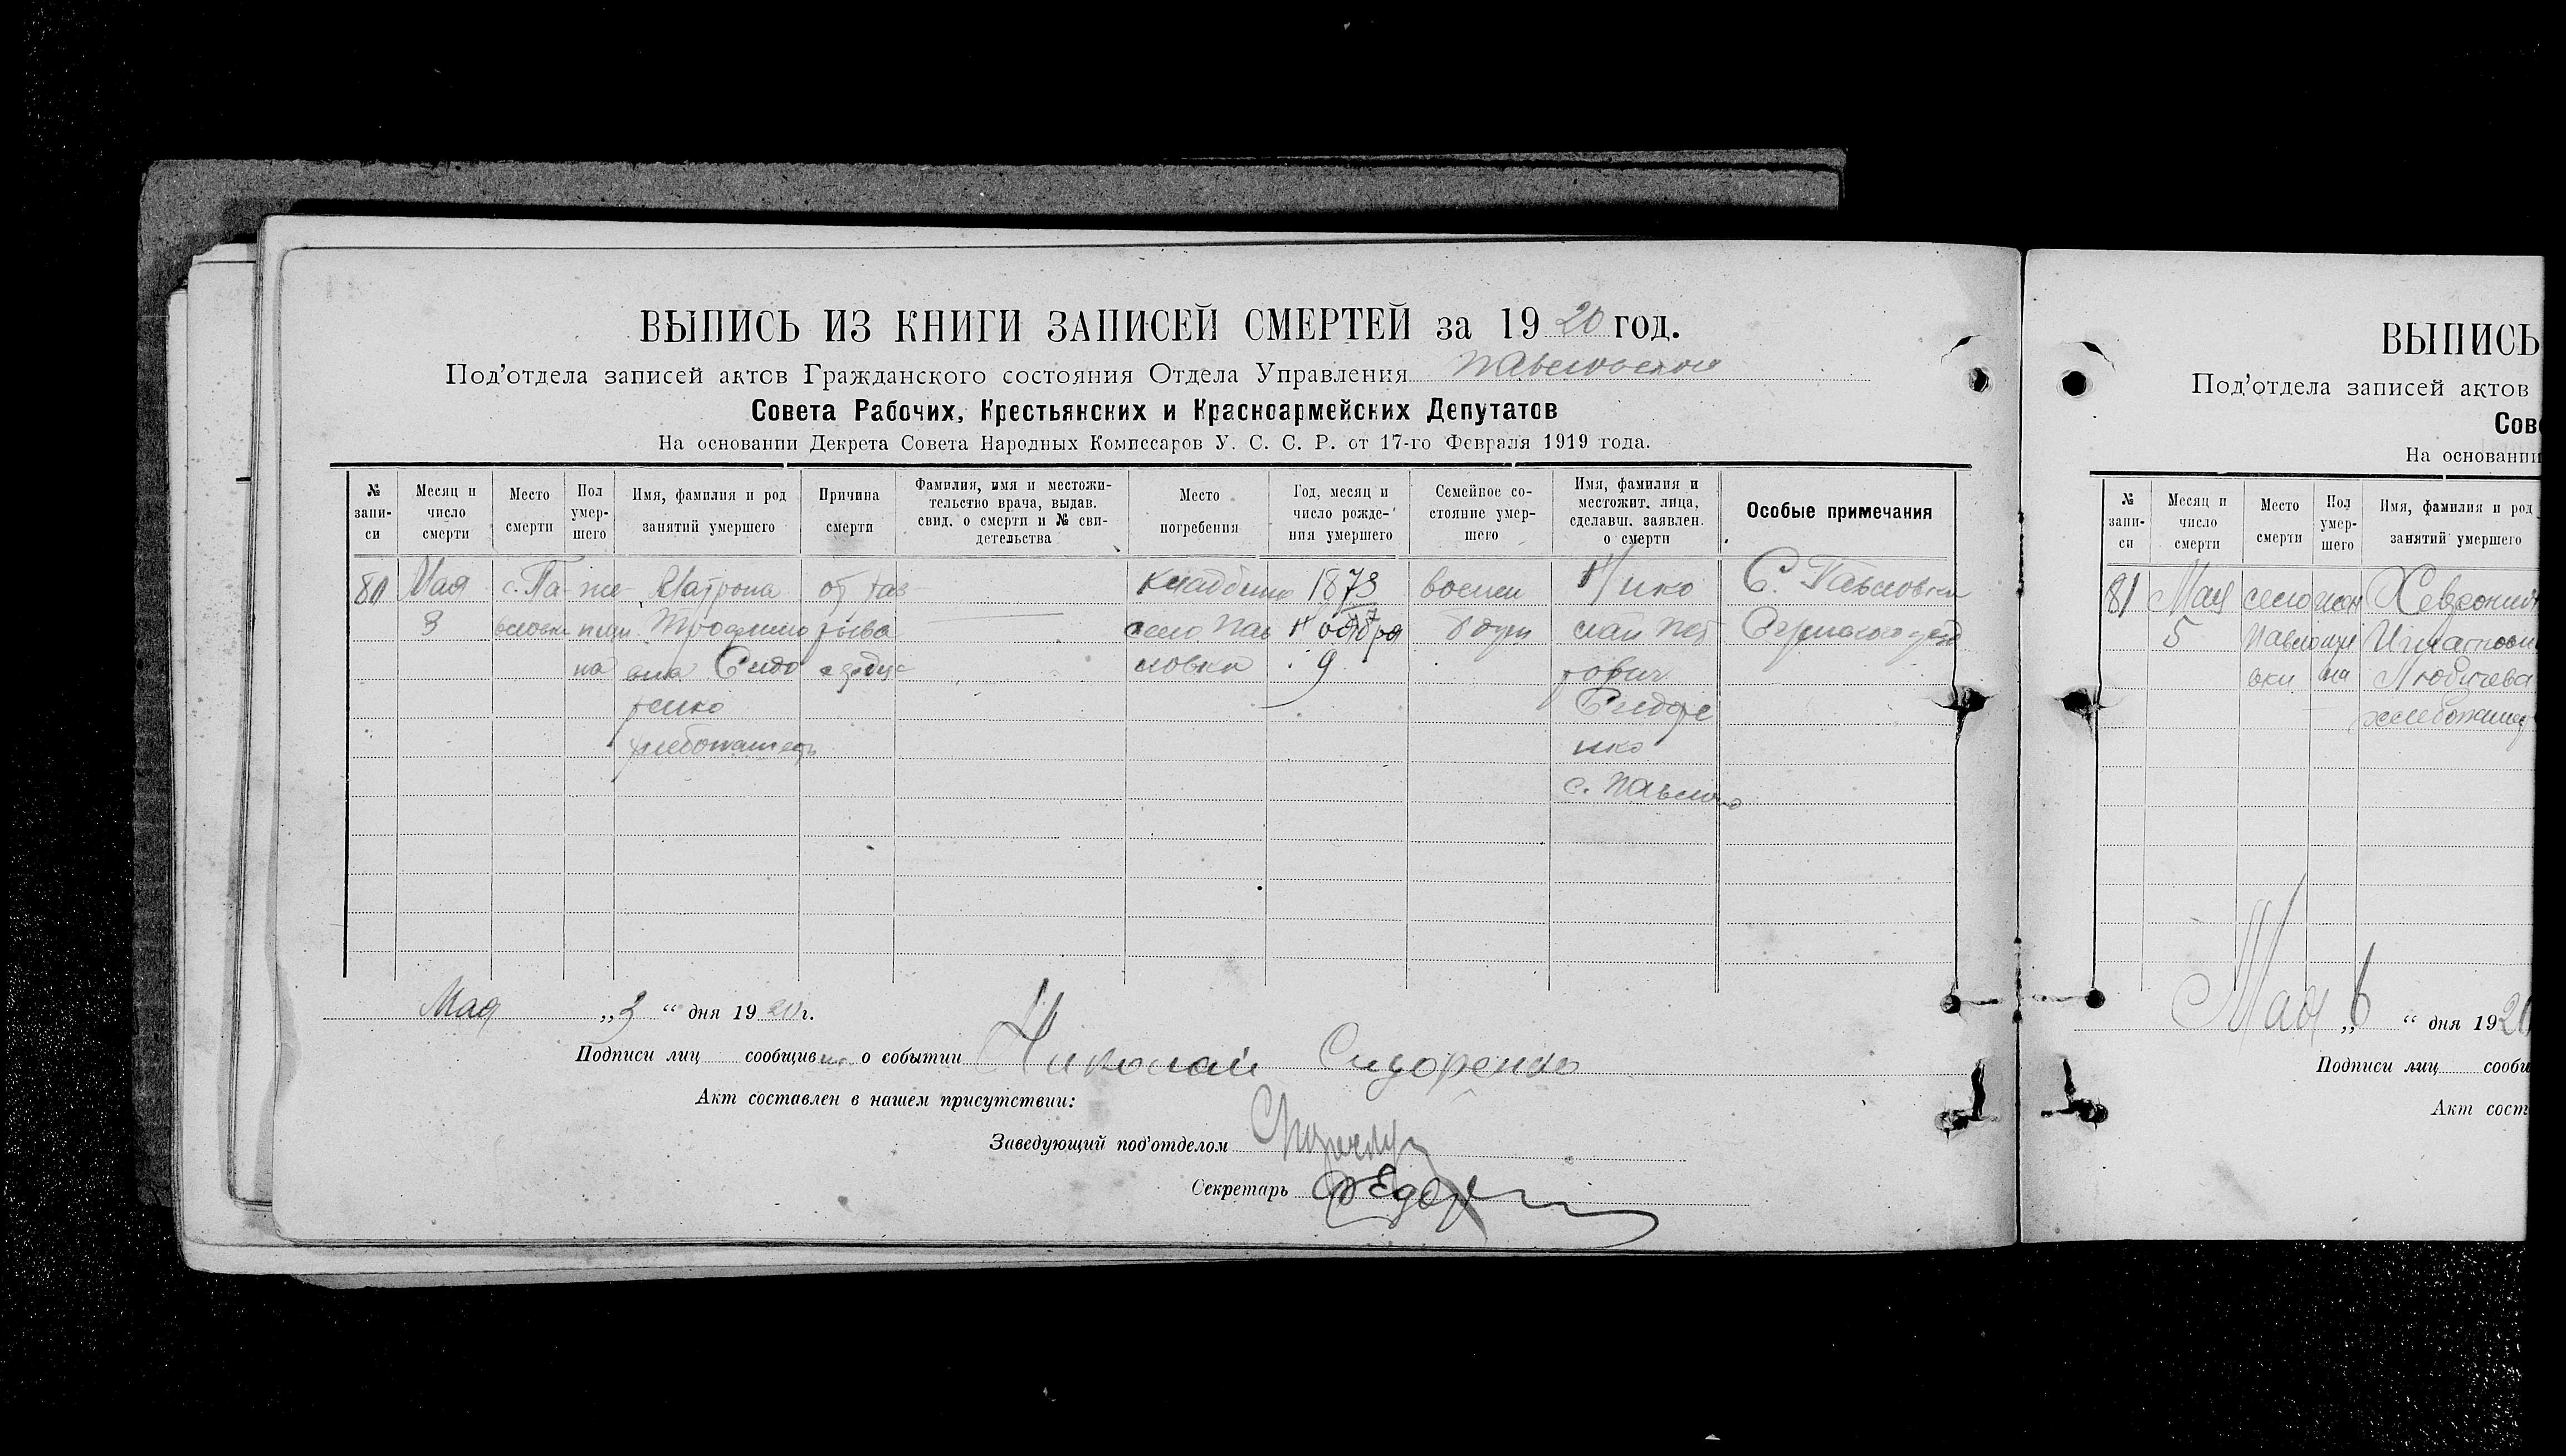 ВЫПИСЬ ИЗ КНИГИ ЗАПИСЕЙ СМЕРТЕЙ за 1920 год.
Под’отдела записей актов Гражданского состояния Отдела Управления Павловского
Совета Рабочих, Крестьянских и Красноармейских Депутатов
На основании Декрета Совета Народных Комиссаров У. С. С. Р. от 17-го Февраля 1919 года.
№ запи-си
Месяц и число смерти
Место смерти
Пол умер-шего
Имя, фамилия и род занятий умершего
Причина смерти
Фамилия, имя и местожи-тельство врача, выдав. свид. о смерти и № сви-детельства
Место погребения
Год, месяц и число рожде-ния умершего
Семейное со-стояние умер-шего
Имя, фамилия и местожит. лица, сделавш. заявлен. о смерти
Особые примечания
80
Мая
3
с. Па-
вловка
же-
на
Матрона
Трофимо
вна Сидо
ренко
хлебопашець
от раз
рыва
сердца
Кладбище
село Пав
ловка
1873
Ноября
9
восем
Нико
лай Пет
рович
Сидоре
нко
с. Павлов
С. Павловка
Мая „3“ дня 1920 г.
Подписи лиц сообщив о событии Николай Сидоренко
Акт составлен в нашем присутствии:
Заведующий под’отделом
Секретарь
ВЫПИСЬ
Под’отдела записей актов
Сов
На основании
№ запи-си
Месяц и число смерти
Место смерти
Пол умер-шего
Имя, фамилия и род занятий умершего
81
Мая
5
село
Павло
вки
жен
на
Игнатовн
Любичева
хлебопашец
Мая „6“ дня 1920
Подписи лиц сообщ
Акт сост